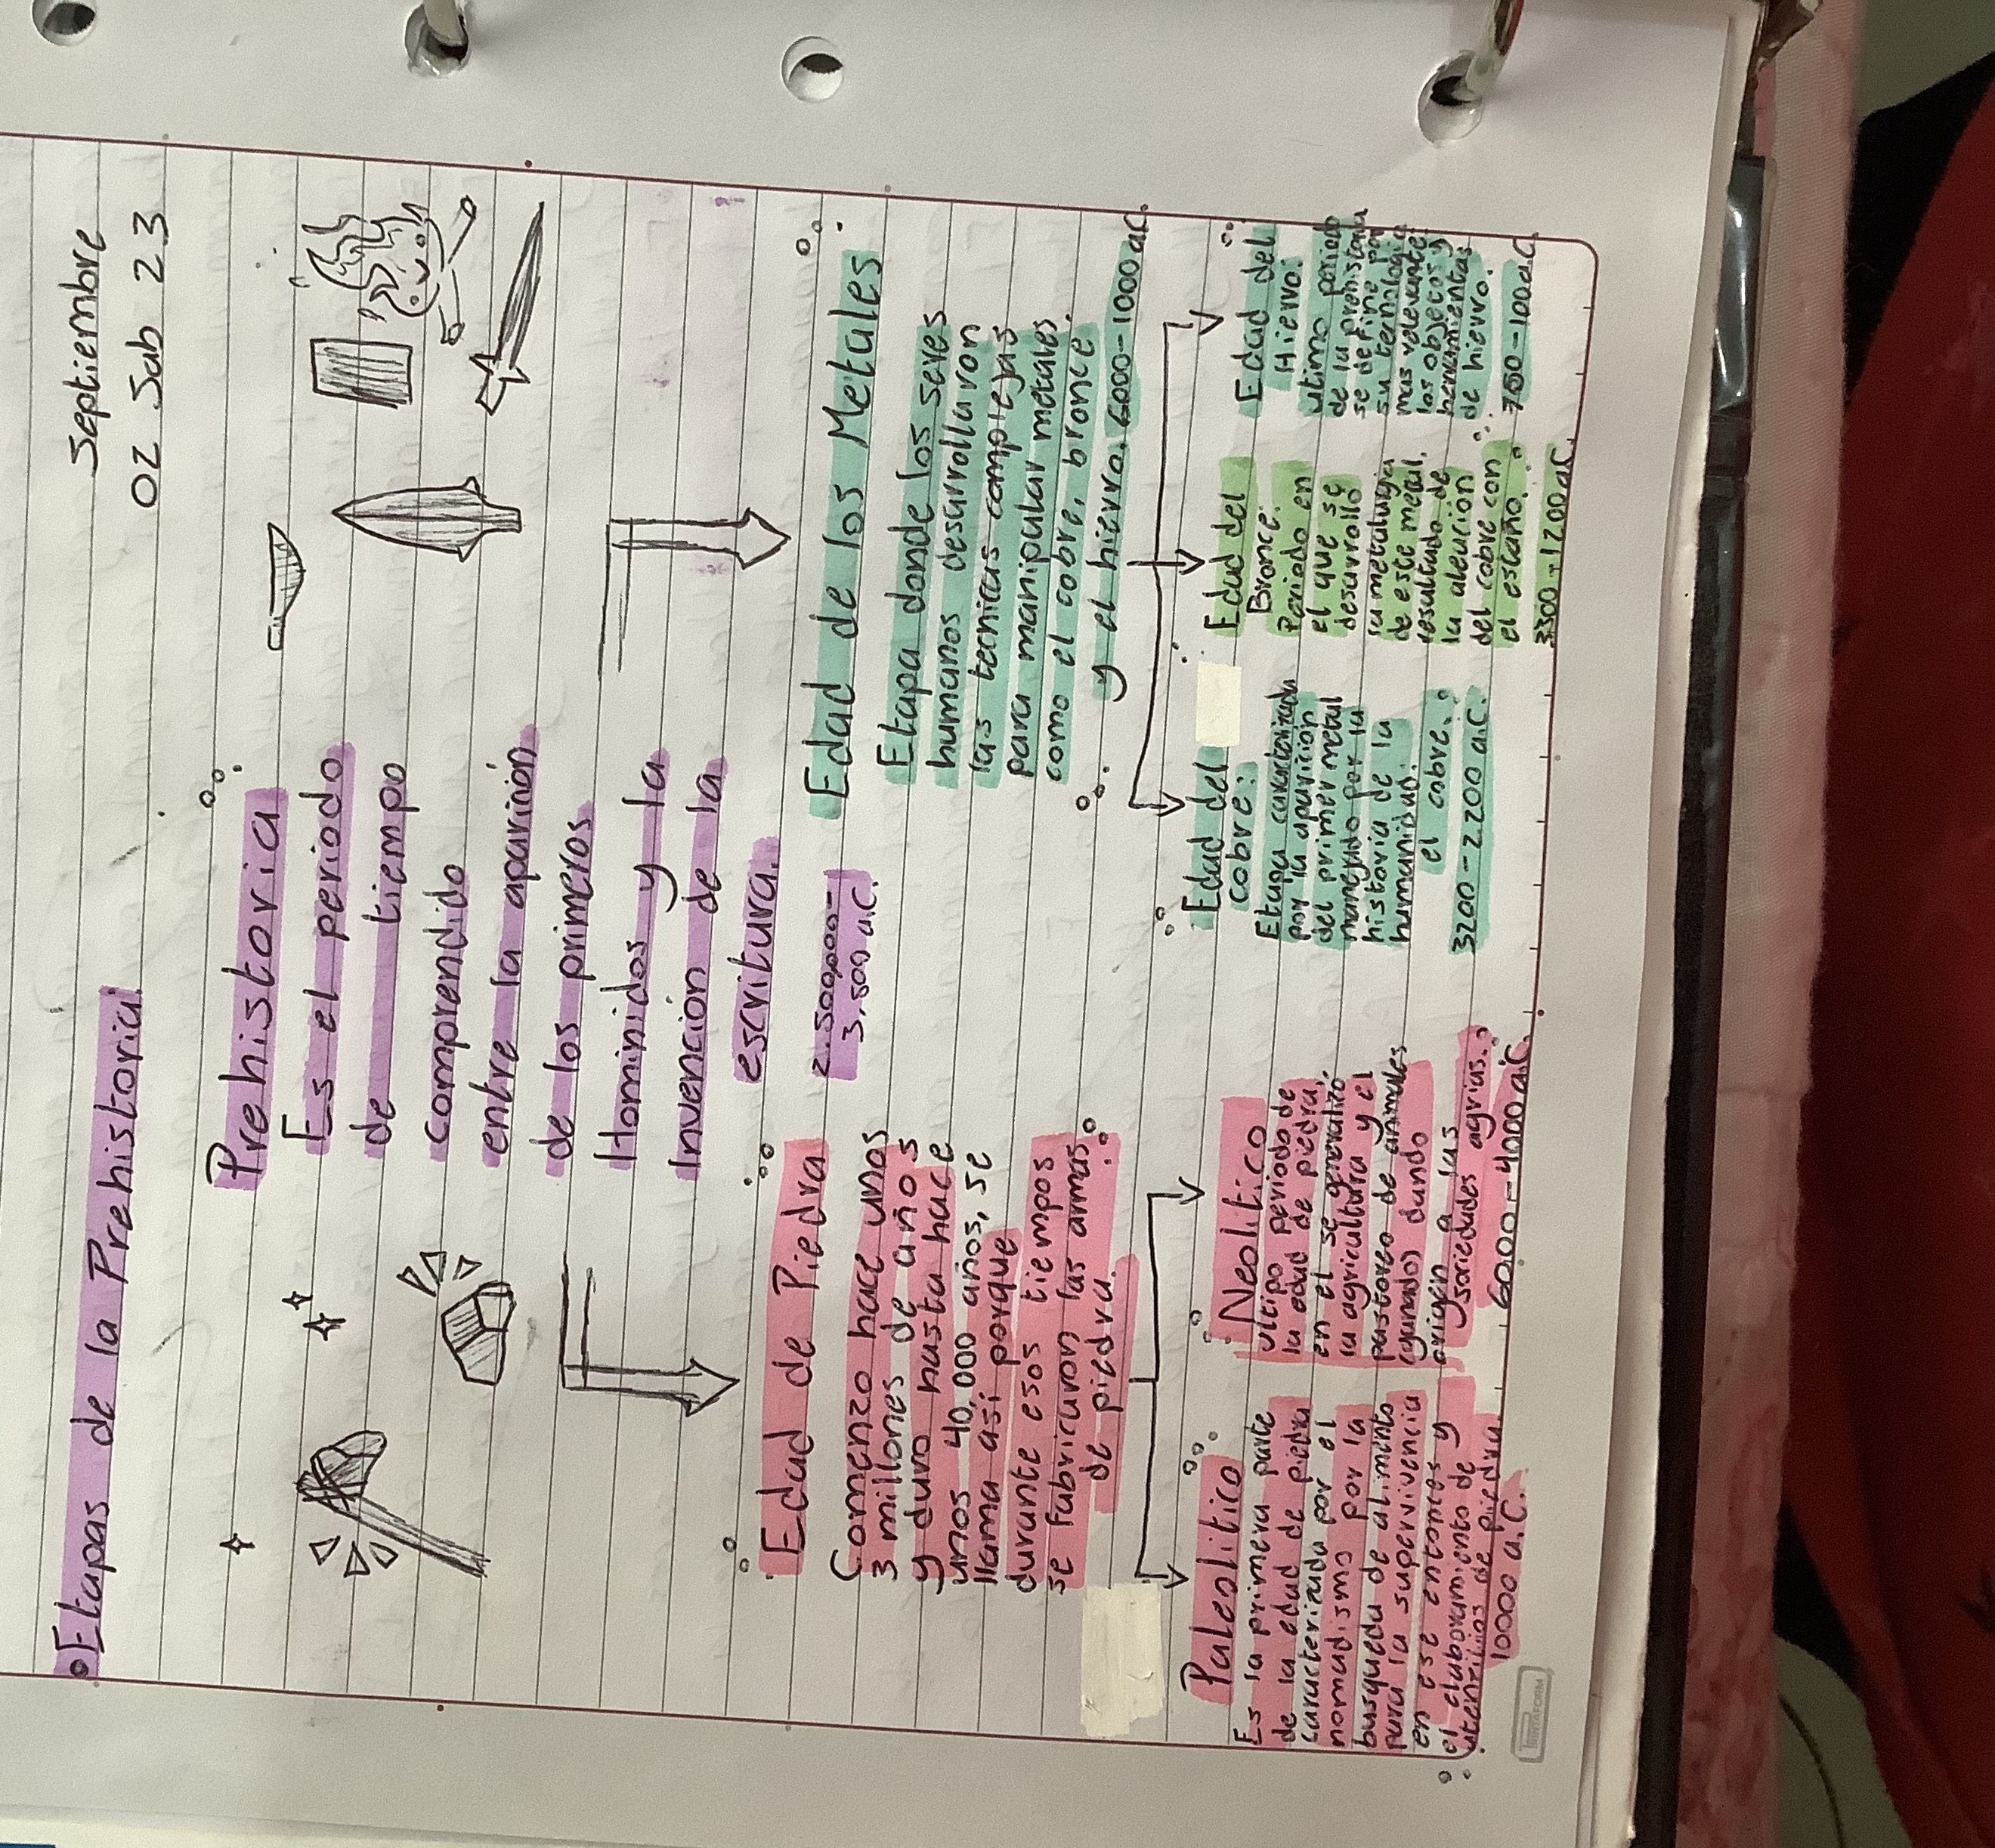 Septiembre
02 Sab 23
Etapas de la Prehistoria
Prehistoria
Es el periodo
de tiempo
comprendido
entre la aparición
de los primeros
Hominidos y la
Invencion de la
escritura.
2.500,000-
3,500 a.C.
Edad de Piedra
Comenzo hace unos
3 millones de años
y duro hasta hace
unos 40,000 años, se
llama asi porque
durante esos tiempos
se fabricaron las armas
de piedra.
Edad de los Metales
Etapa donde los seres
humanos desarrollaron
las tecnicas complejas
para manipular metales
como el cobre, bronce
y el hierro. 6000-1000 a.C.
Paleolitico
Es la primera parte
de la edad de piedra
caracterizada por el
nomadismo por la
busqueda de alimento
para la supervivencia
en ese entonces y
el elaboramiento de
utencilios de piedra.
10000 a.C.
Neolitico
ultipo periodo de
la edad de piedra,
en el se generalizo
la agricultura y el
pastoreo de animales
(ganado) dando
origen a las
sociedades agrias.
6000-4000 a.C.
Edad del
cobre:
Etapa caracterizada
por la aparición
del primer metal
manejado por la
historia de la
humanidad.
el cobre.
3200-2200 a.C.
Edad del
Bronce:
Periodo en
el que se
desarrollo
la metalurgia
de este metal,
resultado de
la aleación
del cobre con
el estaño.
3300-1200 a.C
Edad del
Hierro:
ultimo periodo
de la prehistoria
se define por
su tecnologia
mas relevante
los objetos y
herramientas
de hierro.
-100 a.C.